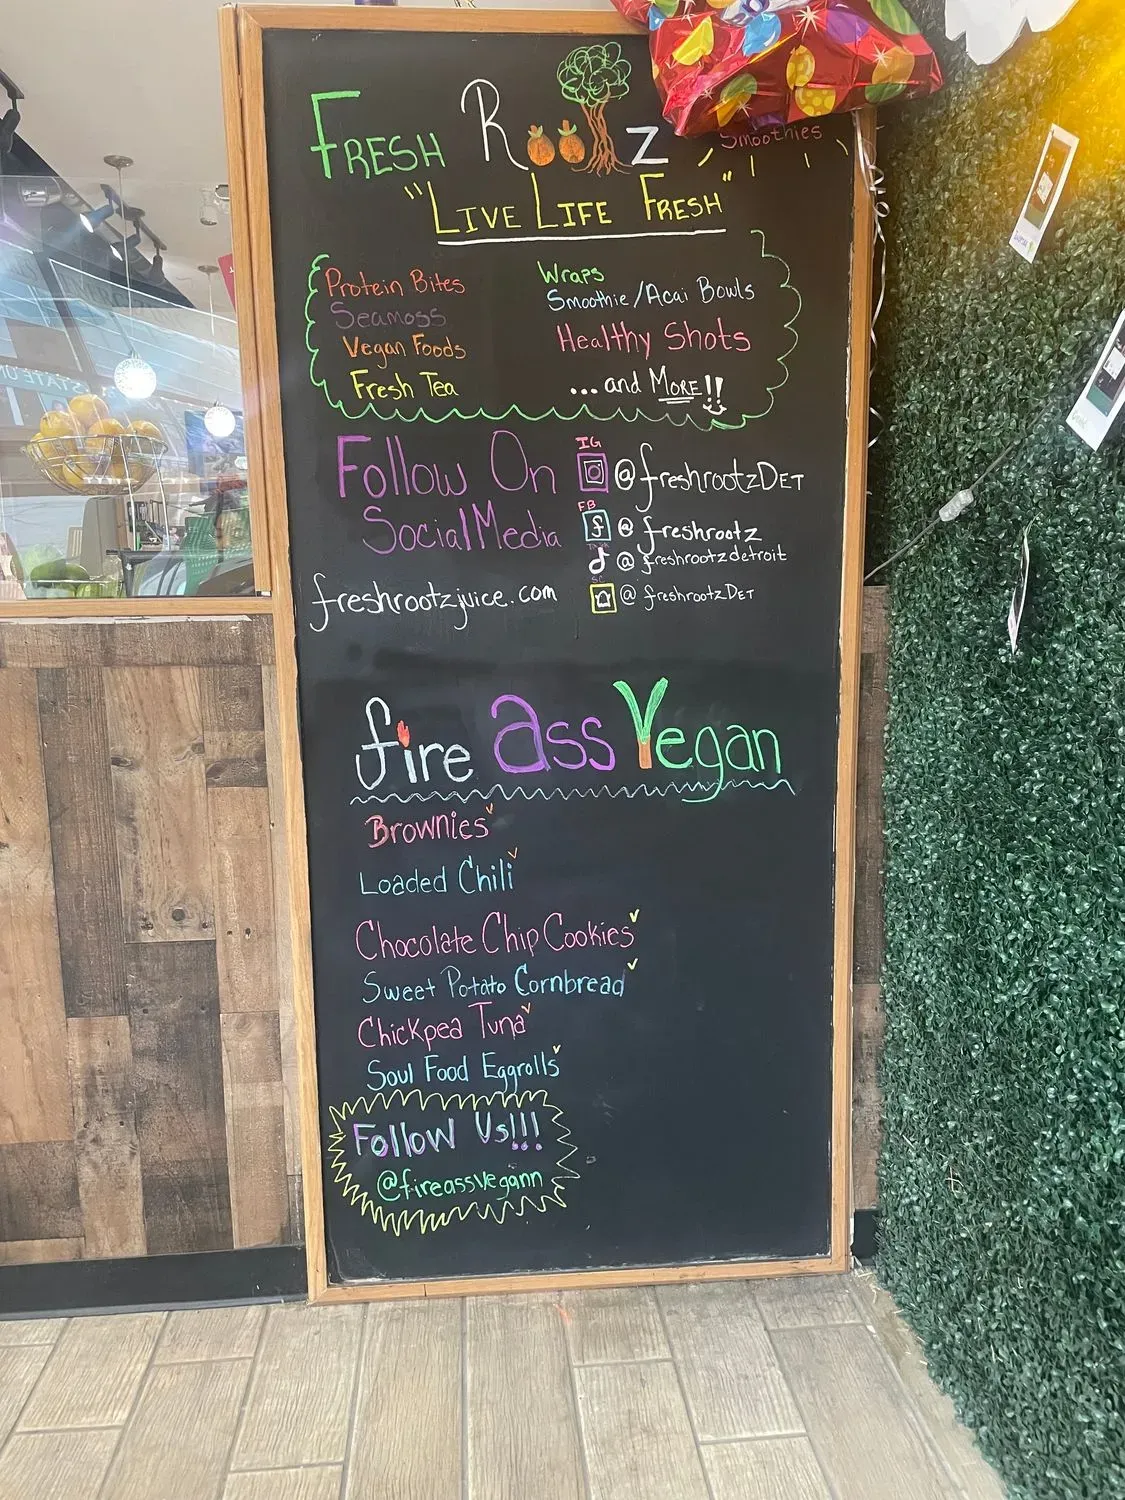 FRESH ROOTZ
Smoothies
"LIVE LIFE FRESH"
Protein Bites
Seamoss
Vegan Foods
Fresh Tea
Wraps
Smoothie/Acai Bowls
Healthy Shots
...and MORE!!
Follow On
Social Media
IG
@freshrootzDET
FB
@freshrootz
@freshrootzdetroit
SC
@freshrootzDET
freshrootzjuice.com
fire Ass Vegan
Brownies
Loaded Chili
Chocolate Chip Cookies
Sweet Potato Cornbread
Chickpea Tuna
Soul Food Eggrolls
Follow Us!!!
@fireassvegann